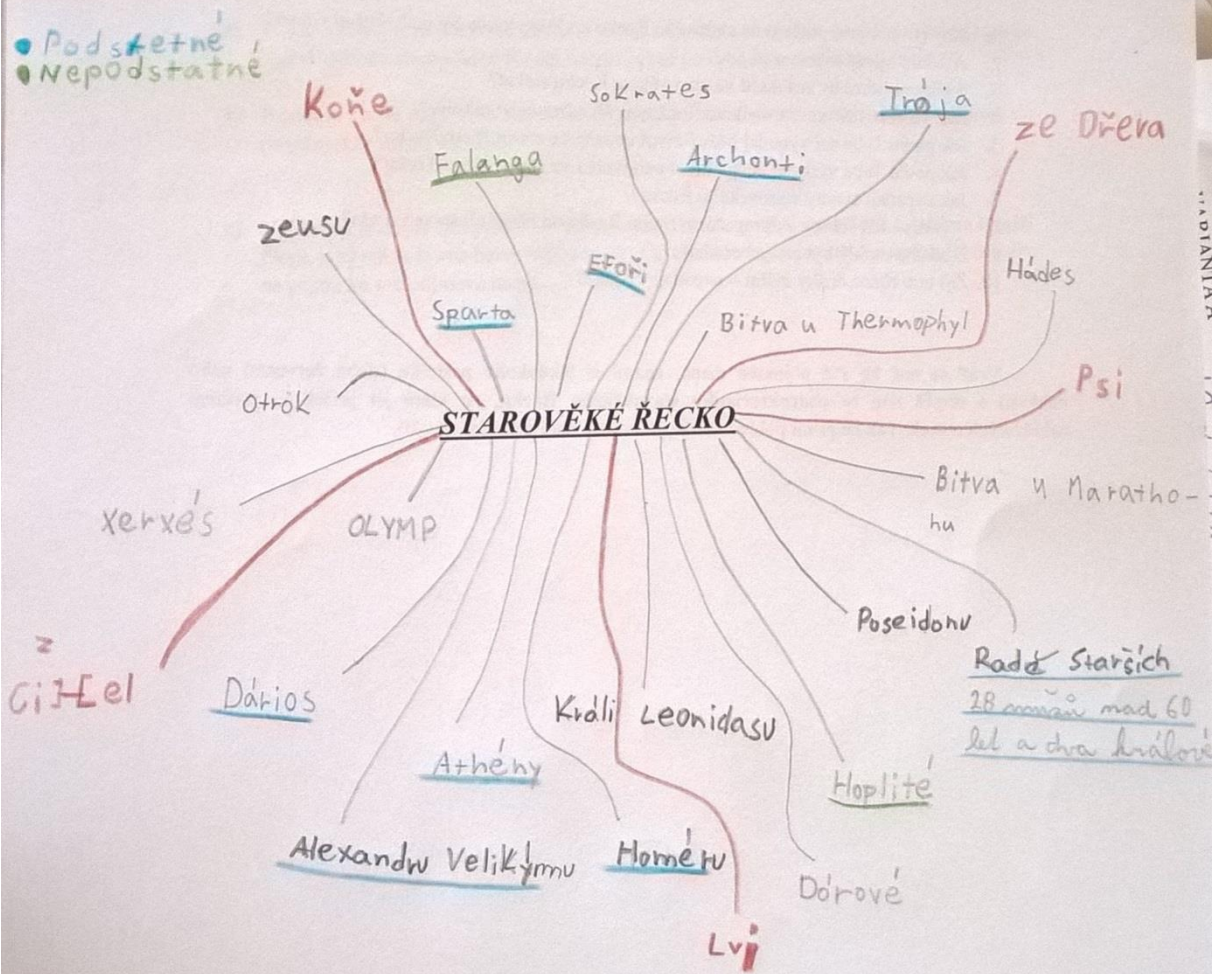 Podstetné
Nepodstatné
Koňe
Sokrates
Trója
ze Dřeva
Falanga
Archonti
zeusu
Effoři
Hádes
Sparta
Bitva u Thermophyl
Psi
otrok
STAROVĚKÉ ŘECKO
Bitva u Maratho-
nu
xerxés
OLYMP
Poseidonu
z
Radě Starších
28 mužů nad 60
let a dva králové
Dários
Králi Leonidasu
Athény
Hoplité
Alexandru Velikýmu
Homéru
Dórové
Lvi